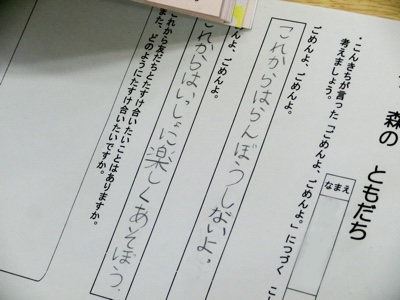 森の ともだち
なまえ
・こんきちが言った「ごめんよ、ごめんよ。」につづく こ
考えましょう。
ごめんよ、ごめんよ。
これからはらんぼうしないよ。
ごめんよ、ごめんよ。
これからはいっしょに楽しくあそぼう。
これから友だちとたすけ合いたいことはありますか。
また、どのようにたすけ合いたいですか。